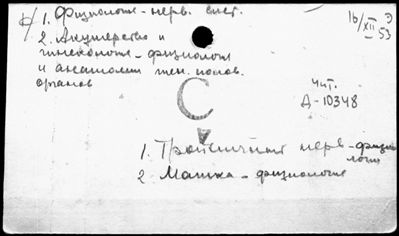 1. Физиология - нерв. сист.
16/XII 53
Э
2. Акушерство и
гинекология - физиология
и анатомия жен. полов.
органов
Чит.
Д-10348
С
1. Тройничный нерв - физио
логия
2. Матка - физиология